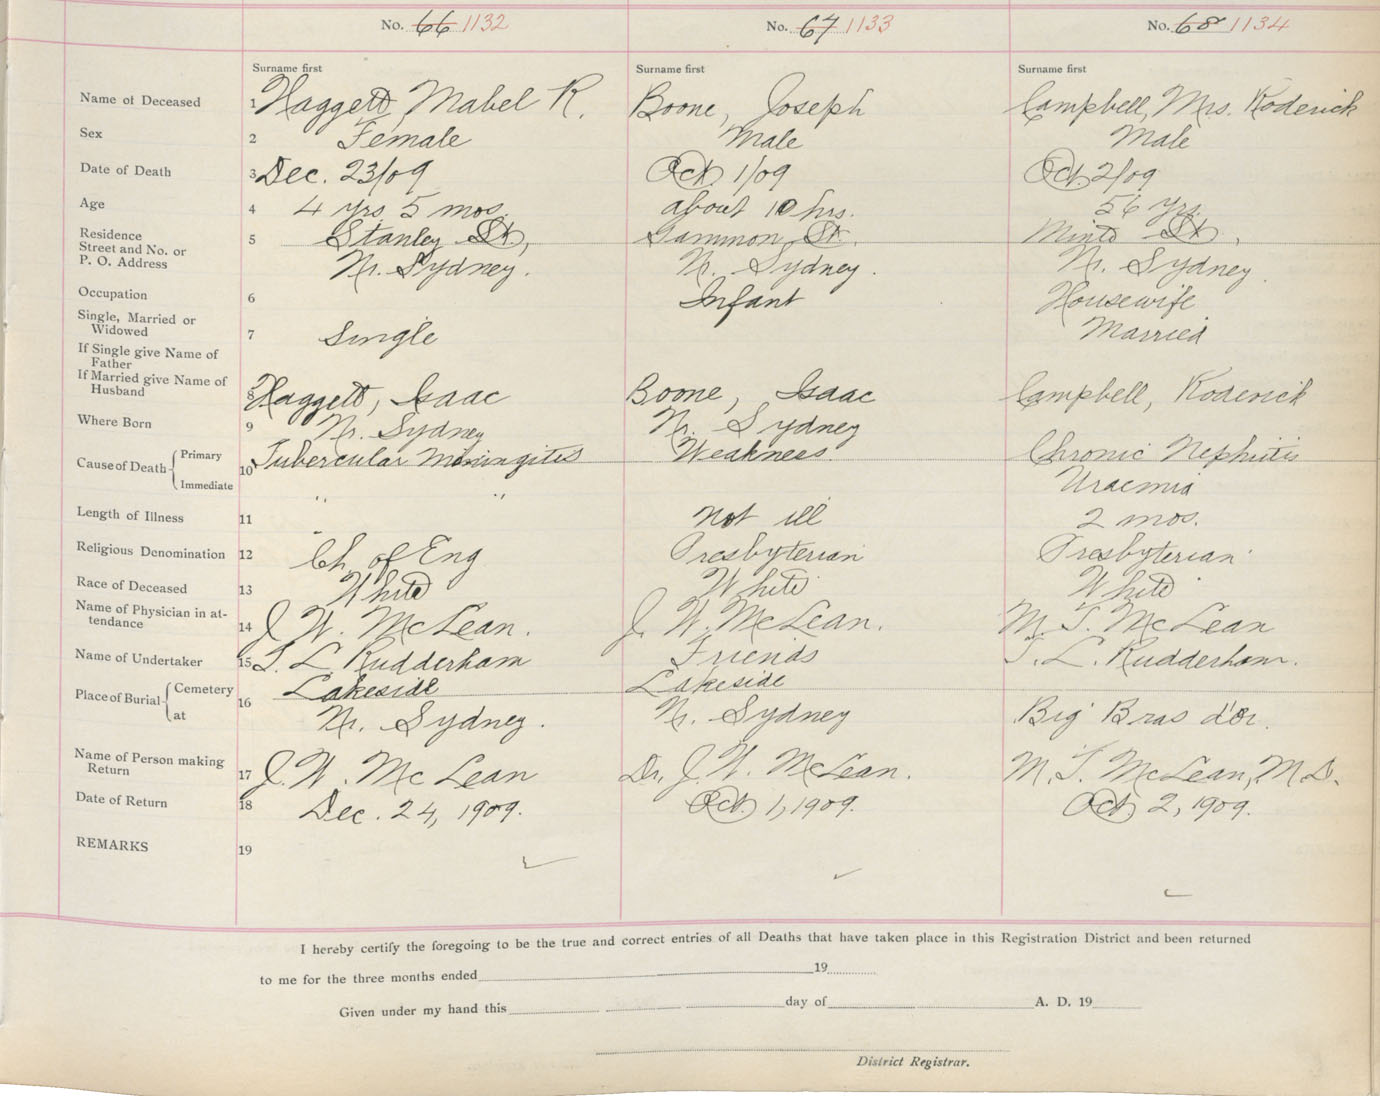 No. 66 1132 No. 67 1133 No. 68 1134
Surname first Surname first Surname first
Name of Deceased 1 Haggett, Mabel R. Boone, Joseph Campbell, Mrs. Roderick
Sex 2 Female Male Male
Date of Death 3 Dec. 23/09 Oct. 1/09 Oct. 2/09
Age 4 4 yrs 5 mos. about 10 hrs. 56 yrs.
Residence
Street and No. or
P. O. Address
5 Stanley St., Gammon St. Minto St.,
Nr. Sydney. Nr. Sydney. Nr. Sydney.
Occupation 6 Infant Housewife
Single, Married or
Widowed
7 Single Married
If Single give Name of
Father
If Married give Name of
Husband
8 Haggett, Isaac Boone, Isaac Campbell, Roderick
Where Born 9 Nr. Sydney Nr. Sydney
Cause of Death Primary 10 Tubercular Meningitis Weakness Chronic Nephritis
Immediate " " Uraemia
Length of Illness 11 Not ill 2 mos.
Religious Denomination 12 Ch of Eng Presbyterian Presbyterian
Race of Deceased 13 White White White
Name of Physician in at-
tendance
14 J. W. McLean. J. W. McLean. M. T. McLean
Name of Undertaker 15 T. L. Rudderham Friends T. L. Rudderham.
Place of Burial Cemetery 16 Lakeside Lakeside
at Nr. Sydney. Nr. Sydney Big Bras d'Or.
Name of Person making
Return
17 J. W. McLean Dr. J. W. McLean. M. T. McLean, M.D.
Date of Return 18 Dec. 24, 1909. Oct. 1, 1909. Oct. 2, 1909.
REMARKS 19
I hereby certify the foregoing to be the true and correct entries of all Deaths that have taken place in this Registration District and been returned
to me for the three months ended 19
Given under my hand this day of A. D. 19
District Registrar.